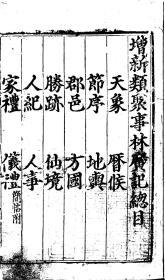 增新類聚事林廣記總目
天象　曆候
節序　地輿
郡邑　方國
勝跡　仙境
人紀　人事
家禮　儀禮